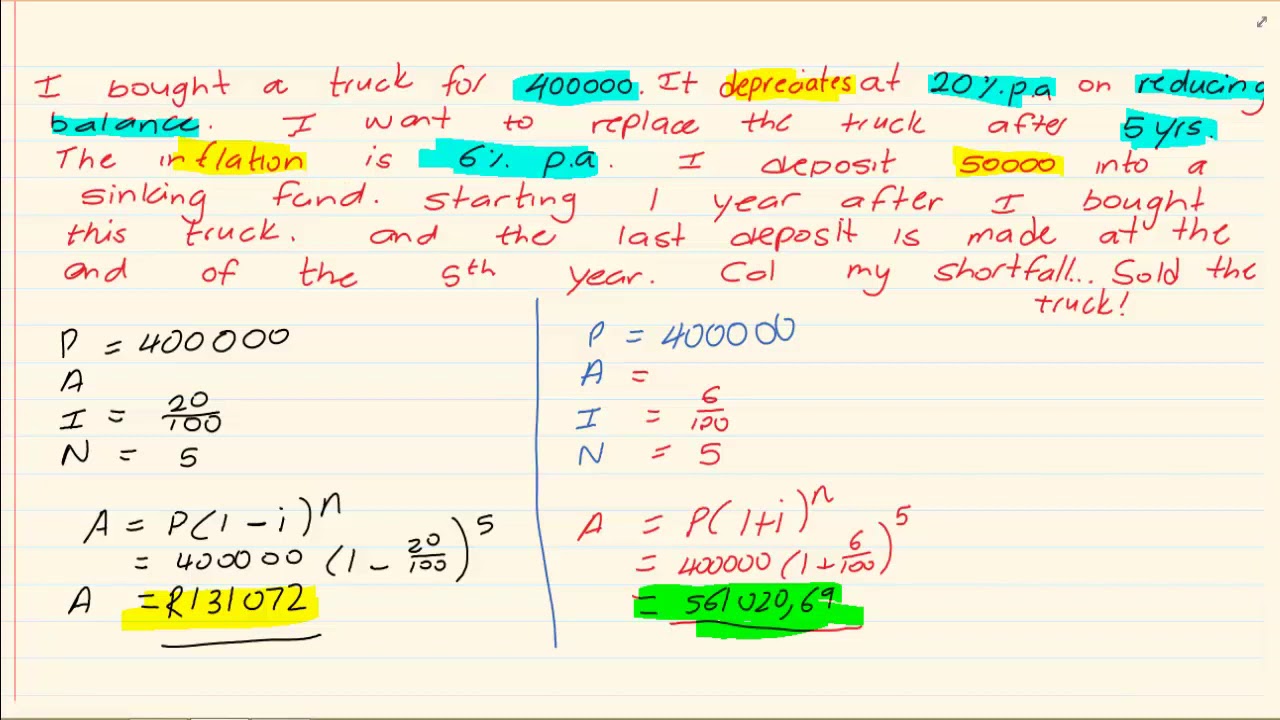 I bought a truck for 400000. It depreciates at 20% p.a on reducing
balance. I want to replace the truck after 5 yrs.
The inflation is 6% p.a. I deposit 50000 into a
sinking fund. starting 1 year after I bought
this truck. and the last deposit is made at the
end of the 5th year. Cal my shortfall... Sold the
truck!
P = 400000
A
I = 20/100
N = 5
A = P(1 - i)^n
= 400000 (1 - 20/100)^5
A = R131072
P = 400000
A =
I = 6/100
N = 5
A = P(1+i)^n
= 400000 (1 + 6/100)^5
= 561020,69